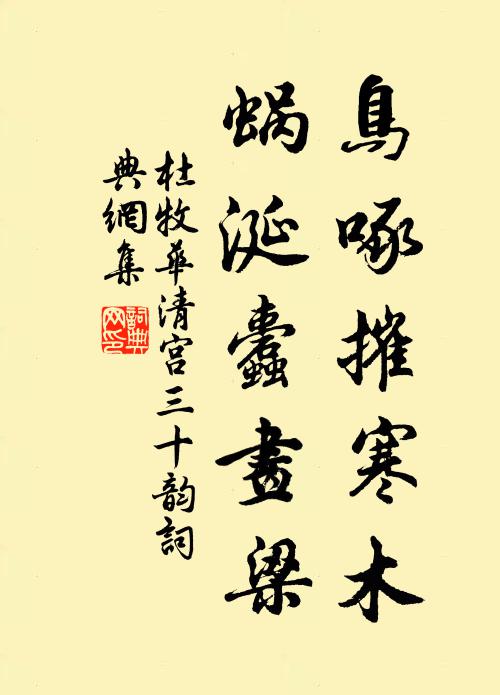 鳥啄摧寒木
蝸涎蠹畫梁
杜牧華清宮三十韵詞
典網集
詞典
网印